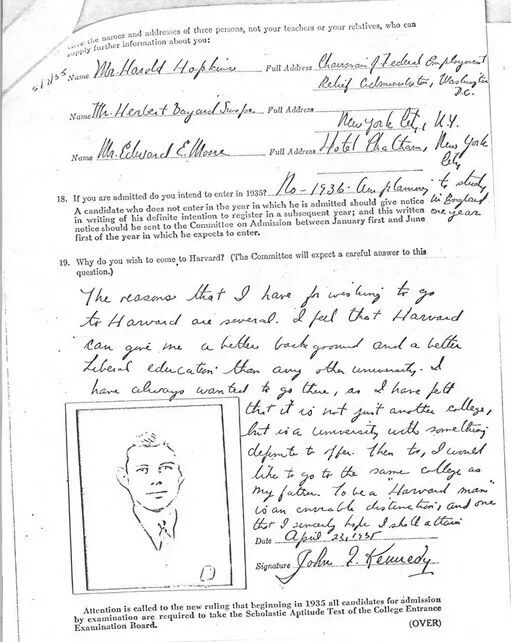 Give the names and addresses of three persons, not your teachers or your relatives, who can
supply further information about you:
Name Mr. Harold Hopkins Full Address Chairman of Federal Employment
Relief Administration, Washington
D.C.
Name Mr. Herbert Bayard Swope Full Address
New York City, N.Y.
Name Mr. Edward E. Moore Full Address Hotel Chatham, New York
City
18. If you are admitted do you intend to enter in 1935? No - 1936 - Am planning to study
in England
one year
A candidate who does not enter in the year in which he is admitted should give notice
in writing of his definite intention to register in a subsequent year; and this written
notice should be sent to the Committee on Admission between January first and June
first of the year in which he expects to enter.
19. Why do you wish to come to Harvard? (The Committee will expect a careful answer to this
question.)
The reasons that I have for wishing to go
to Harvard are several. I feel that Harvard
can give me a better background and a better
liberal education than any other university. I
have always wanted to go there, as I have felt
that it is not just another college,
but is a university with something
definite to offer. Then too, I would
like to go to the same college as
my father. To be a "Harvard man"
is an enviable distinction, and one
that I sincerely hope I shall attain
Date April 23, 1935
Signature John F. Kennedy
Attention is called to the new ruling that beginning in 1935 all candidates for admission
by examination are required to take the Scholastic Aptitude Test of the College Entrance
Examination Board.
(OVER)